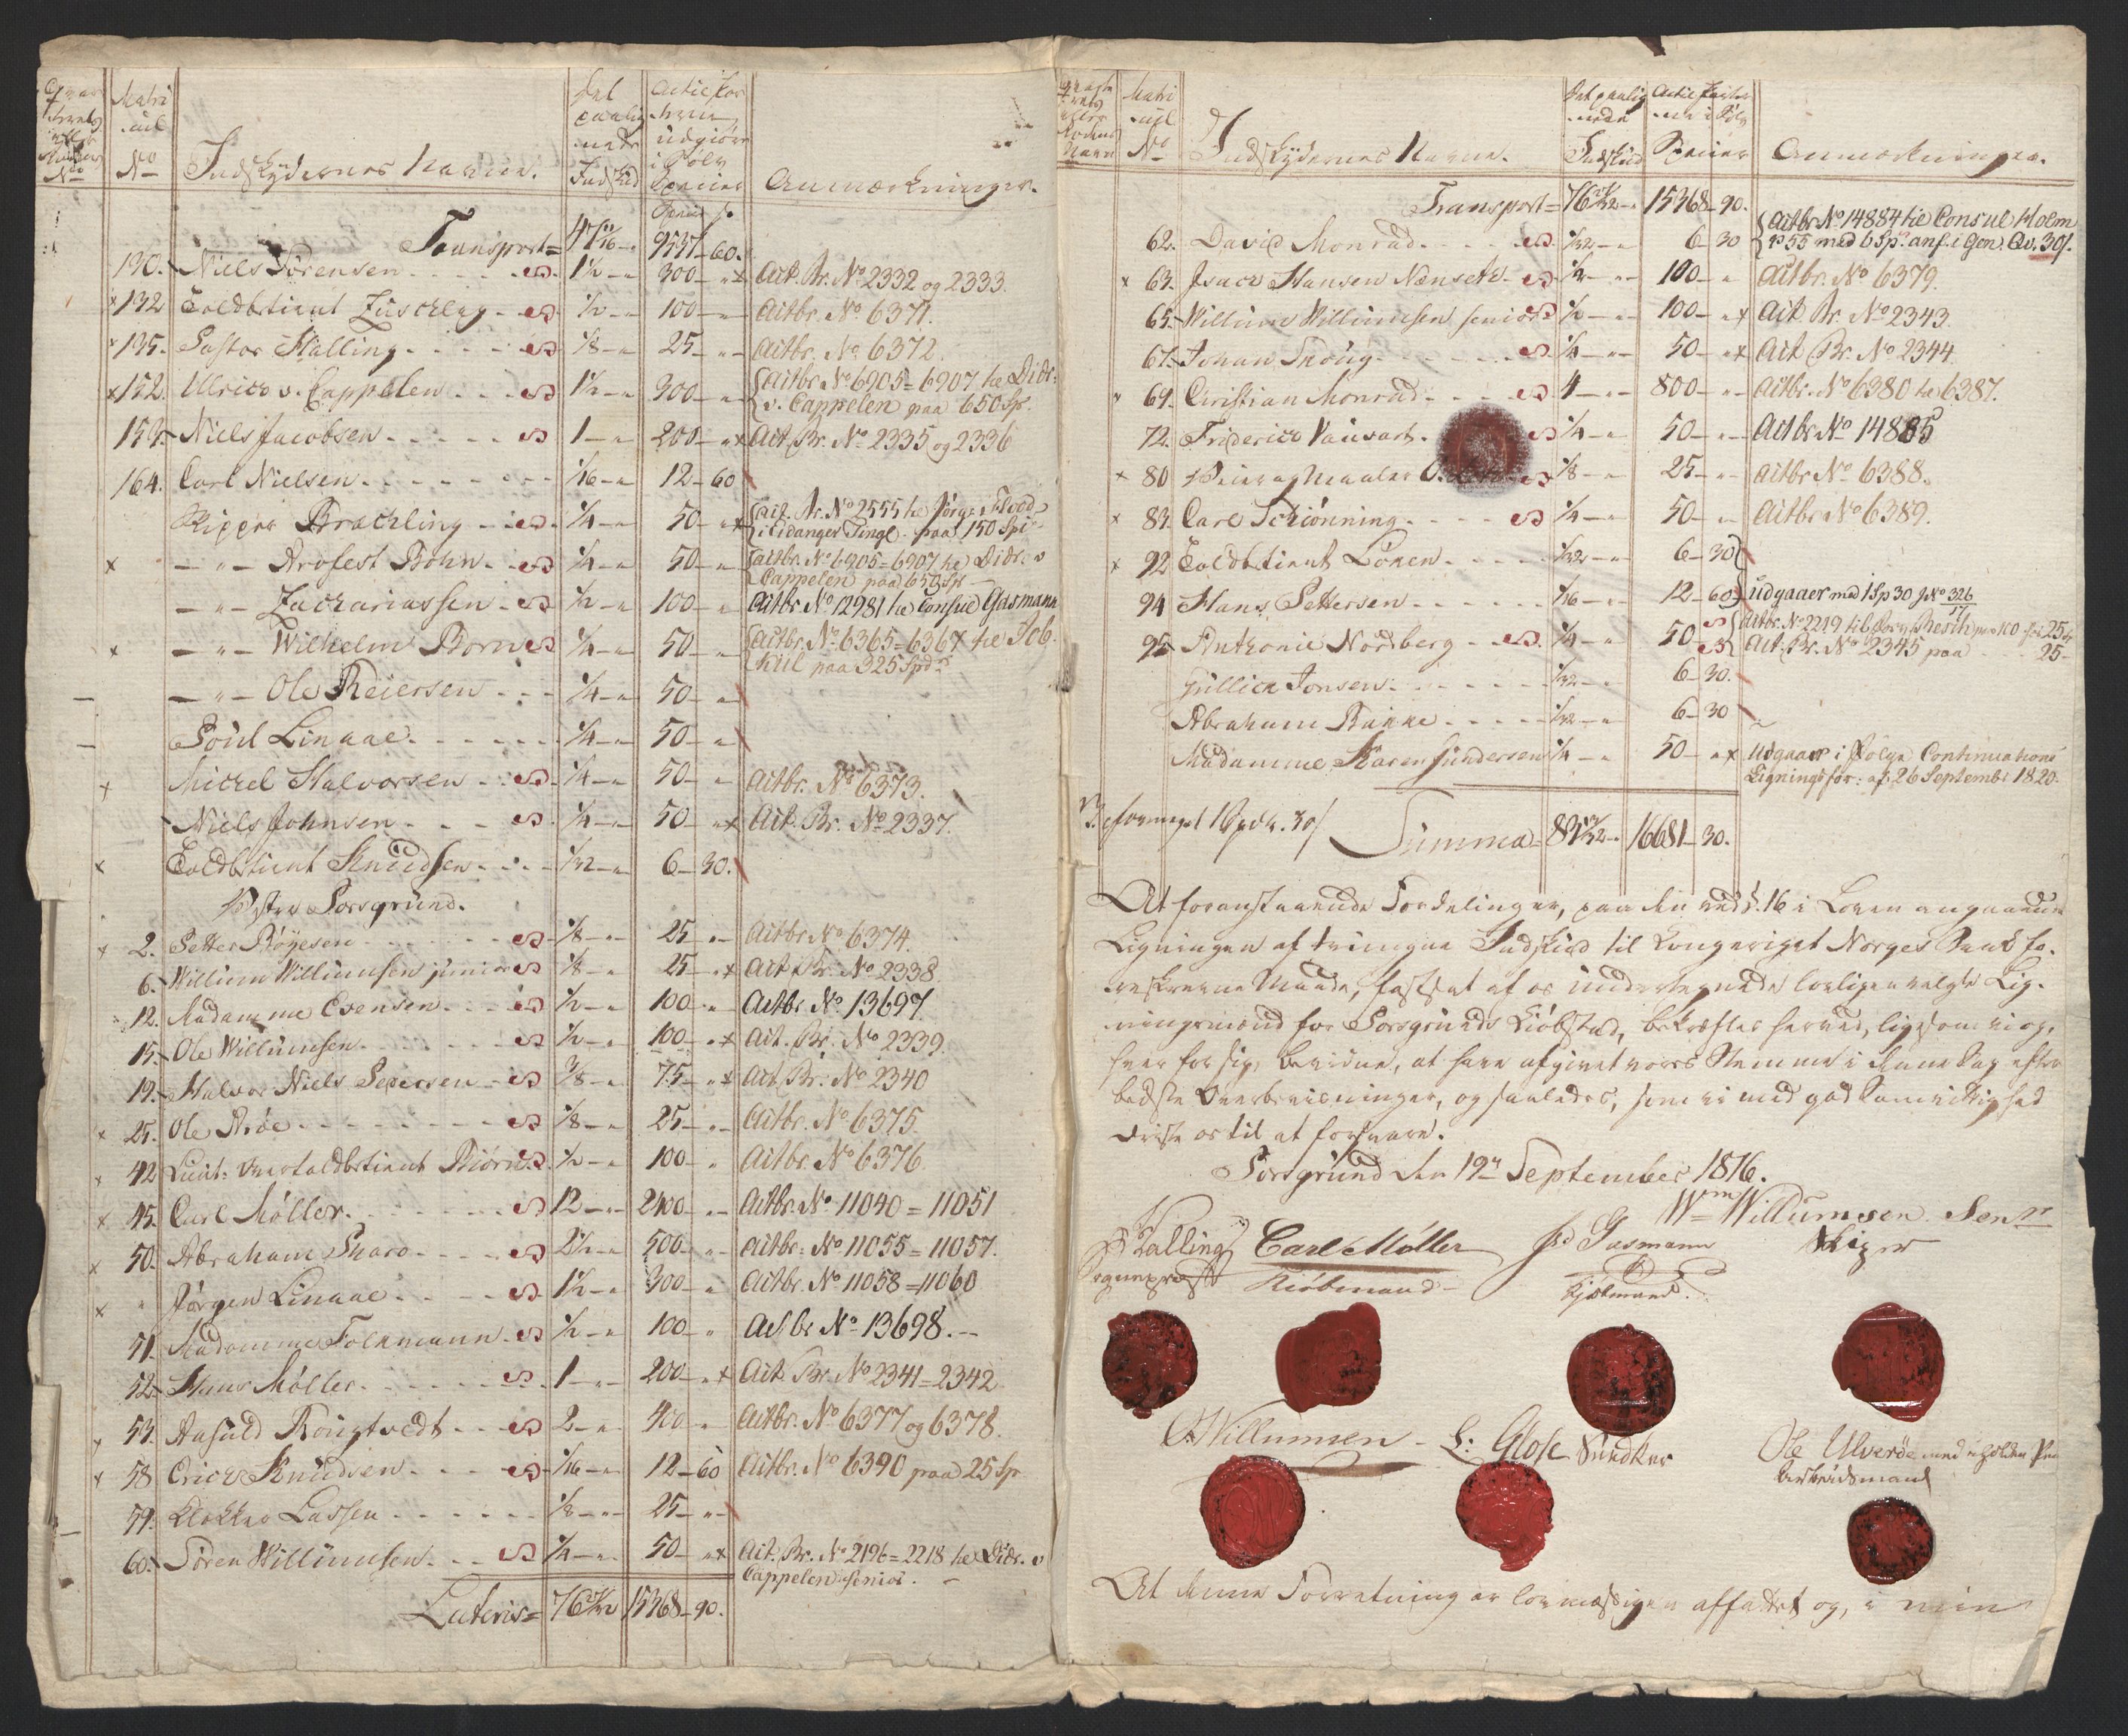 Matri
cul
No
Indskydernes Navne.
Det
paalig
nede
Indskud
Actie For
udgiør
i Sølv
Specier
Anmærkninger.
Transport = 47 11/16 9537 60.
130. Niels Sørensen 1 1/2 300 x Act. Br. No 2332 og 2333.
x 132 Toldbetient Zuschlag 1/2 100 Actbr. No 6371.
x 135. Pastor Halling 1/8 25 Actbr. No 6372.
x 152. Ulrich v. Cappelen 1 1/2 300 Actbr. No 6905 = 6907 til Didr:
v. Cappelen paa 650 Sp.
153. Niels Jacobsen 1 200 x Act. Br. No 2335 og 2336
164. Carl Nielsen 1/16 12 60
Skipper Brechling 1/4 50 x Act. Br. No 2555 til Jørg: Flood
i Eidanger Tingl. paa 150 Spe
x " Profest Bohn 1/4 50 Actbr. No 6905 = 6907 til Didr. v
Cappelen paa 650 Sp
" Zachariassen 1/2 100 Actbr. No 12981 til Consul Gasmann
x " Wilhelm Born 1/4 50 Actbr. No 6365 = 6367 til Job.
Kiil paa 325 Spd
" Ole Reiersen 1/4 50
Poul Linaae 1/4 50
x Michel Halvorsen 1/4 50 Actbr. No 6373.
Niels Johnsen 1/4 50 x Act. Br. No 2337.
x Toldbetient Knudsen 1/32 6 30.
Vestre Porsgrund.
x 2. Petter Bøyesen 1/8 25 Actbr No 6374.
6. Willum Willumsen junior 1/8 25 x Act Br. No 2338.
12. Madamme Evensen 1/2 100 Actbr No 13697.
15. Ole Willumsen 1/2 100 x Act. Br. No 2339.
19. Halvor Niels Pedersen 3/8 75 x Act. Br. No 2340
x 25. Ole Røe 1/8 25 Actbr. No 6375.
x 42 Lieut: Overtoldbetient Biørn 1/2 100 Actbr. No 6376.
x 45. Carl Møller 12 2400 Actbr. No 11040 = 11051
x 50. Abraham Skavo 2 1/2 500 Actbr. No 11055 = 11057.
x " Jørgen Linaae 1 1/2 300 Actbr. No 11058 = 11060
51. Madamme Folkmann 1/2 100 Actbr No 13698.
52. Hans Møller 1 200 x Act. Br. No 2341 = 2342
x 53. Aasuld Rougtvedt 2 400 Actbr. No 6377 og 6378.
x 58 Erich Knudsen 1/16 12 60 Actbr. No 6390 paa 25 Sp
59. Klokker Lassen 1/8 25
60. Søren Willumsen 1/4 50 x Act. Br. No 2196 = 2218 til Didr. v
Cappelen senior.
Lateris = 76 15368 90.
Matri
cul
No
Indskydernes Navne.
Det paalig
nede
Indskud
Specier
Anmærkninger.
Transport = 76 15368 90.
62. David Monrad 1/32 6 30 Actbr No 14884 til Consul Holm
55 med 6 Sp anf. i Gen. Qv. 301.
x 63. Isach Hansen Nenseth 1/2 100 Actbr. No 6379.
65. Willum Willumsen senior 1/2 100 x Act. Br. No 2343.
67. Johan Skoug 1/4 50 x Act. Br. No 2344.
69. Christian Monrad 4 800 Actbr. No 6380 til 6387.
72. Friderich Vauvart 1/4 50 Actbr No 14885
x 80 Veier og Maaler 1/8 25 Actbr No 6388.
x 83. Carl Schiønning 1/4 50 Actbr No 6389.
x 92 Toldbetient Løken 1/32 6 30
94 Hans Pettersen 1/16 12 60 udgaaer med 1 Sp 30 J No 326
17
95. Anthonie Nordberg 1/4 50 Actbr. No 2219 til Jørg Resch paa 100 for 25
Act. Br. No 2345 paa 25
Gullich Jonsen 1/32 6 30.
Abraham Bakke 1/32 6 30
Madamme Karen Gundersen 1/4 50 x Udgaaer i Følge Continuations
Ligningsfor: af 26 September 1820.
Summa = 83 13/32 16681 30.
At foranstaaende Fordelinger, paa den ved §. 16 i Loven angaaende
Ligningen af tvungne Indskud til Kongeriget Norges Bank fo-
reskrevne Maade, fastsat af os undertegnede lovligen valgte Lig-
ningsmænd for Porsgrunds Kiøbsted, bekræftes herved, ligesom vi og,
hver for sig, bevidne, at have afgivet vores Stemme i denne Sag efter
bedste Overbeviisninger, og saaledes, som vi med god Samvittighed
driste os til at forsvare.
Porsgrund den 19de September 1816.
Wm Willumsen Senr
Halling Carl Møller Gasmann Skiper
Sognepræst Kiøbmand Kjøbmand.
Willumsen L: Glose Snedker Ole Ulverøe med iholden Pen
Arbeidsmand
At denne Forretning er lovmæssigen affattet og, i min